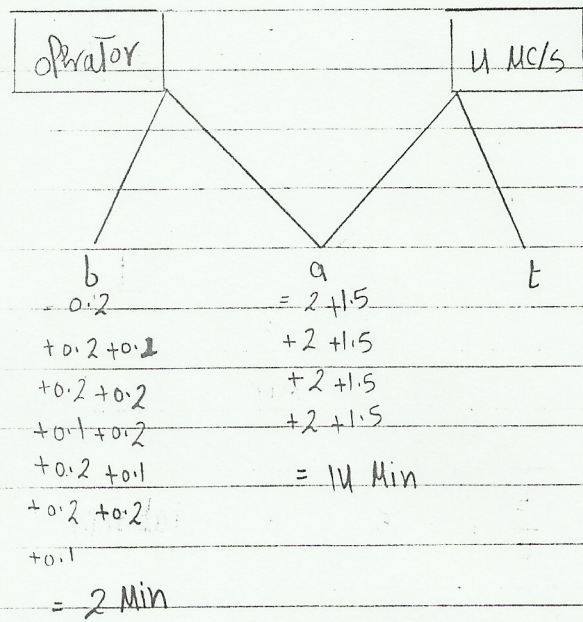 operator
4 MC/s
b
= 0.2
+0.2 +0.1
+0.2 +0.2
+0.1 +0.2
+0.2 +0.1
+0.2 +0.2
+0.1
= 2 Min
a
= 2 +1.5
+2 +1.5
+2 +1.5
+2 +1.5
= 14 Min
t